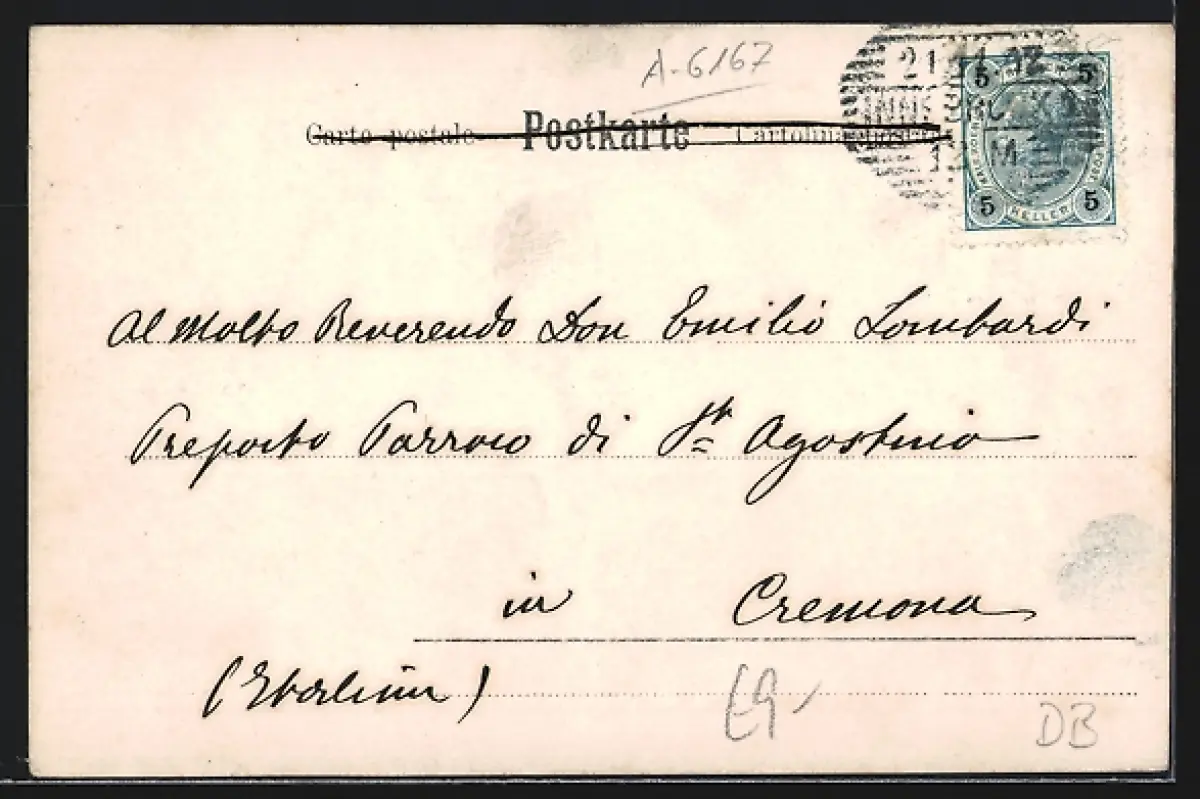 A-6167
Carte postale Postkarte Cartolina
21 11 12
INNSBRUCK
5 5
5 HELLER 5
Al Molto Reverendo Don Emilio Lombardi
Preposto Parroco di St. Agostino
in Cremona
(Italien)
DB